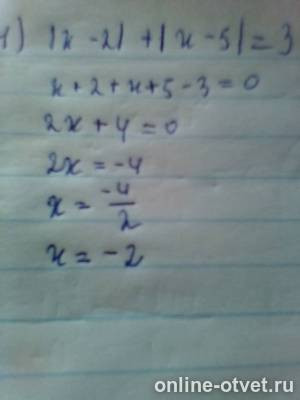 1) |x - 2| + |x - 5| = 3
x + 2 + x + 5 - 3 = 0
2x + 4 = 0
2x = -4
x = -4/2
x = -2
online-otvet.ru